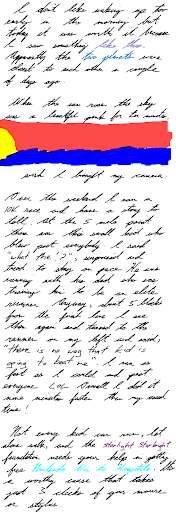 I don't like waking up too
early in the morning but
today it was worth it because
I saw something like this.
Apparently the two planets were
closest to each other a couple
of days ago.
When the sun rose the sky
was a beautiful pink for ten minutes
wish I brought my camera.
Over the weekend I ran a
10K race and have a story to
tell. At the 5 mile point
there was this small kid who
blew past everybody. I said
"what the ?", surprised and
tried to stay on pace. He was
running with his dad who was
training him to be an elite
runner. Anyway, about 5 blocks
from the finish line I see
them again and turned to the
runner on my left and said,
"there is no way that kid is
going to beat me". I ran so
fast as I could and passed
everyone. LOL. Overall I did it
nine minutes faster than my usual
time!
Not every kid can run, let
alone walk, and the Starlight Starbright
foundation needs your help in getting
free Nintendo Wii to hospitals. It's
a worthy cause that takes
just 3 clicks of your mouse
or stylus.